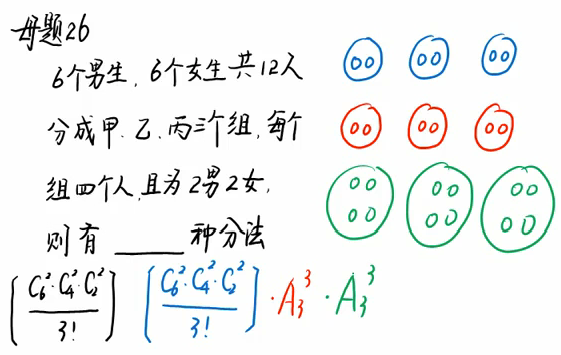 母题26
6个男生,6个女生共12人
分成甲.乙.丙三个组,每个
组四个人,且为2男2女,
则有 ______ 种分法
[C₆²·C₄²·C₂² / 3!] [C₆²·C₄²·C₂² / 3!] ·A₃³ ·A₃³